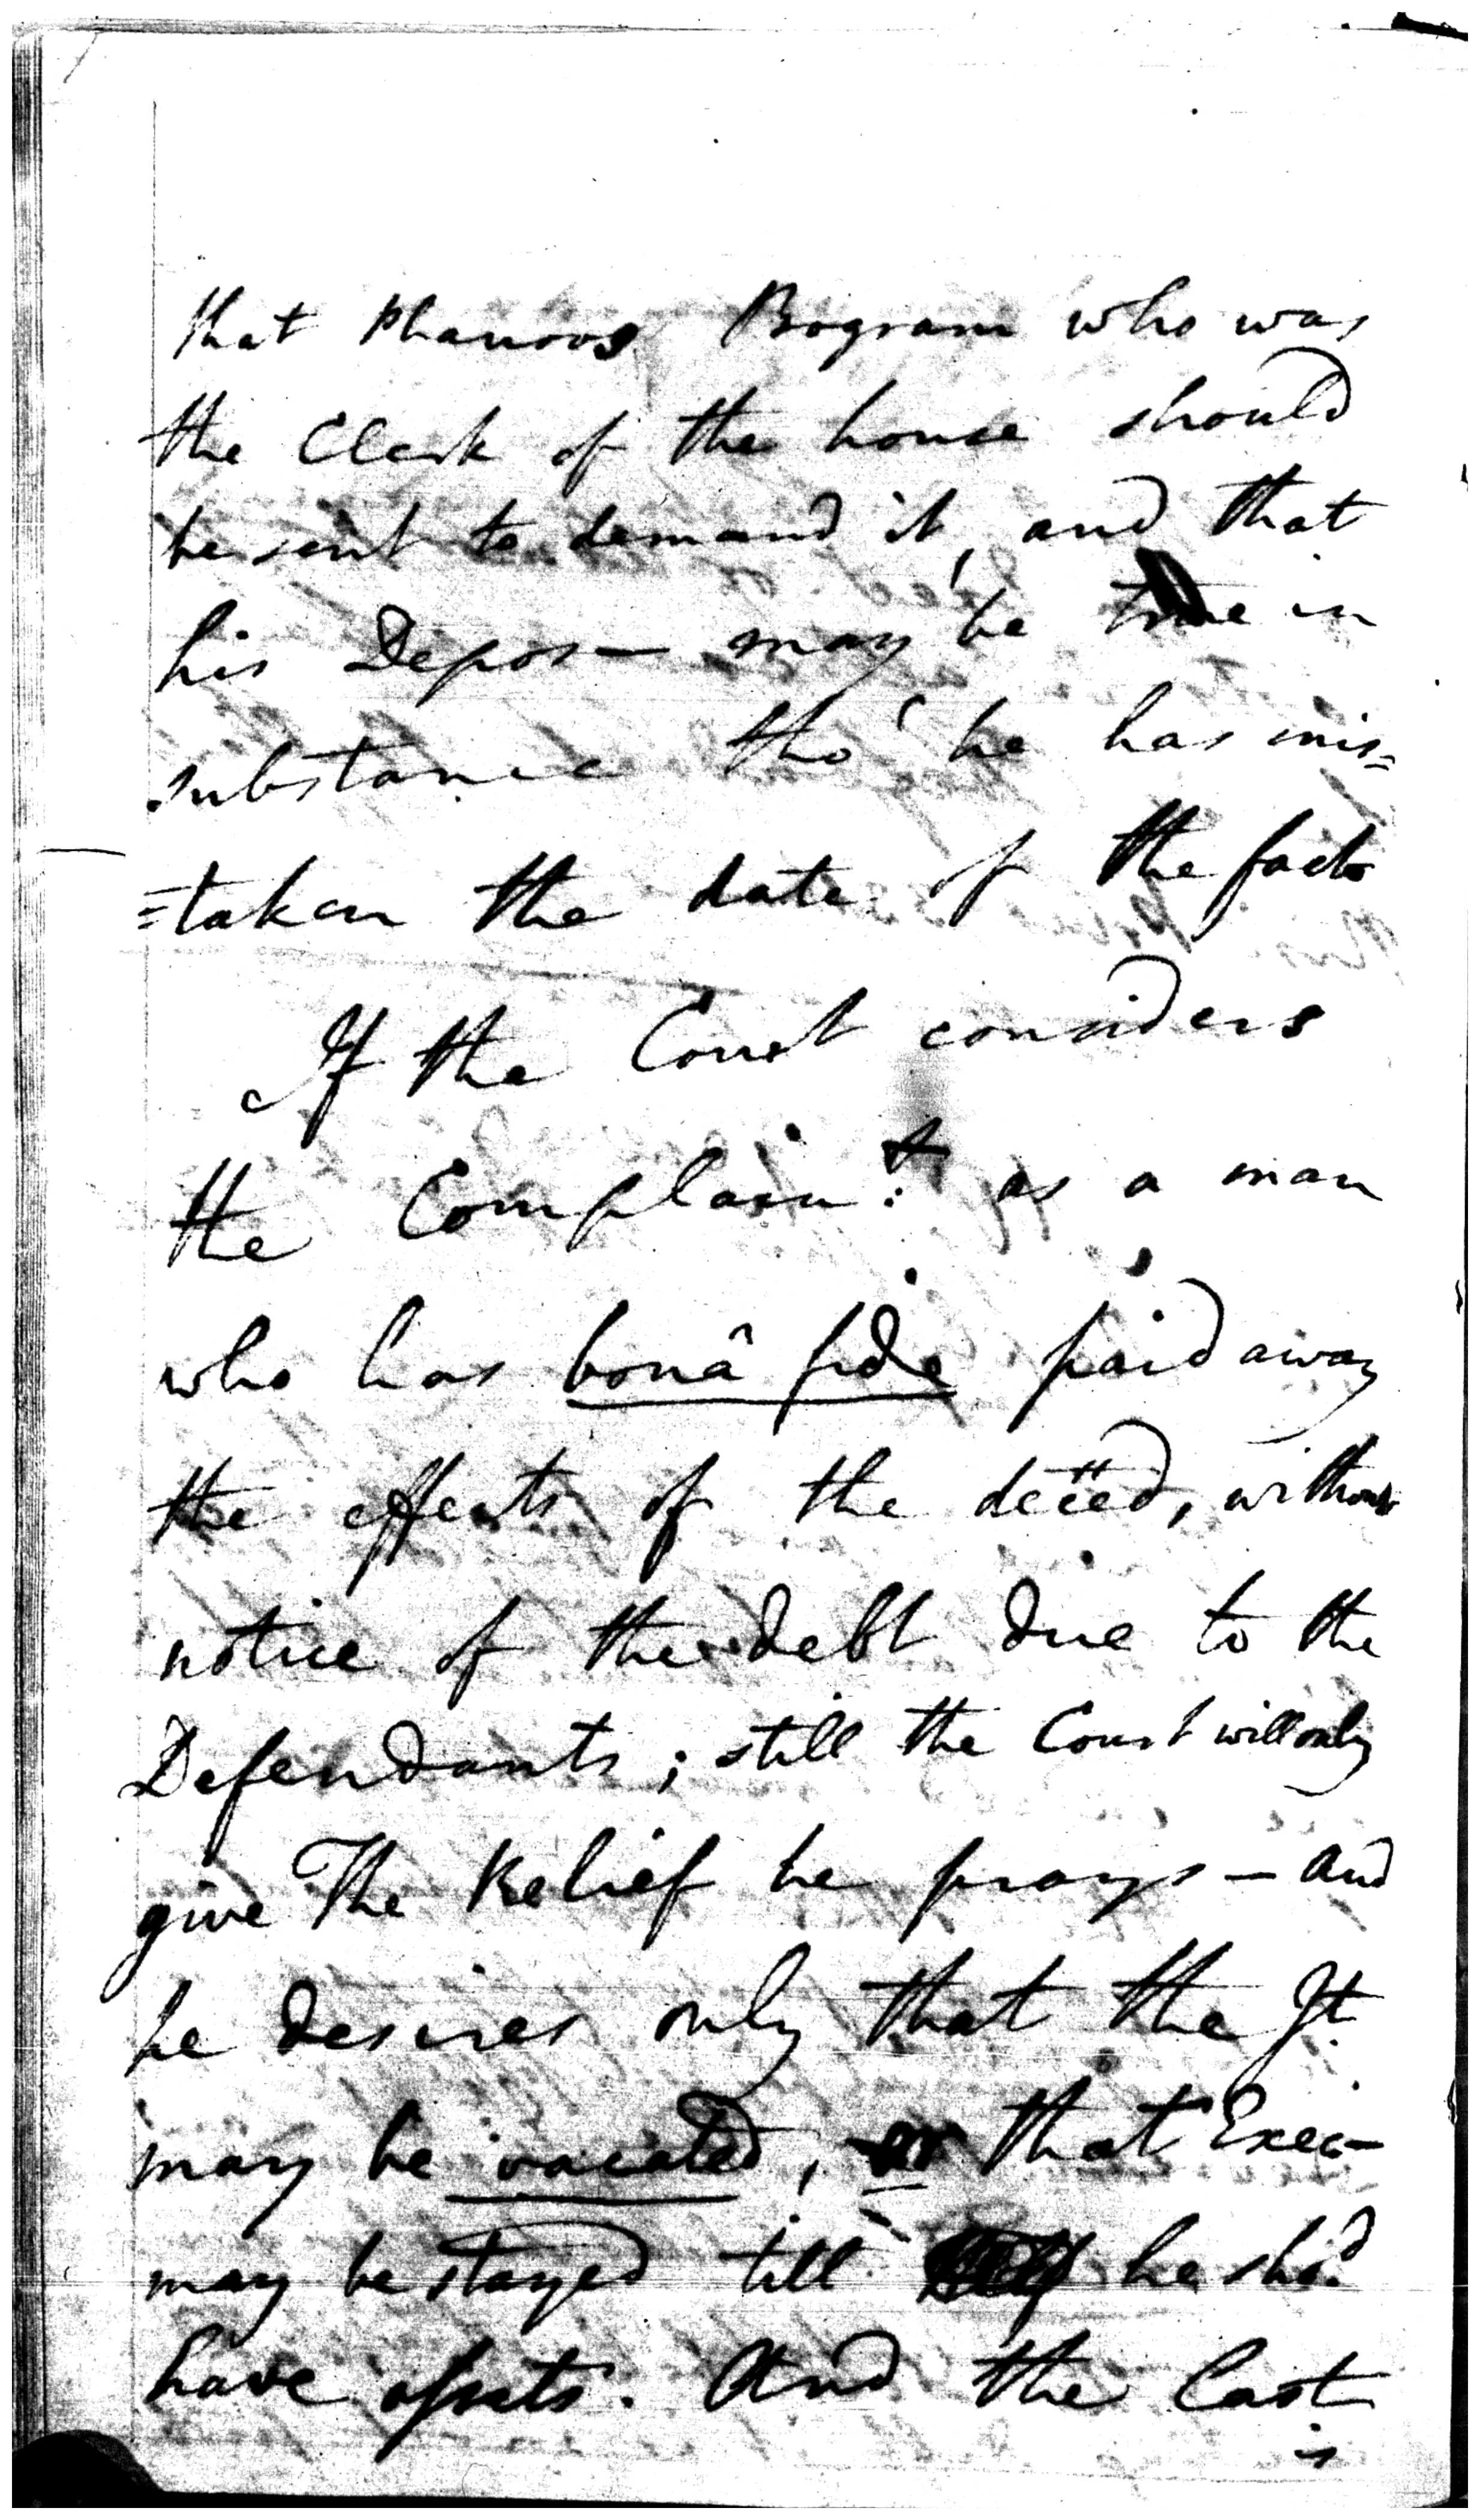 that Phanoos Bogram who was
the Clerk of the house should
be sent to demand it, and that
his Depos— may be true in
substance tho' he has mis=
=taken the date of the facts
If the Court considers
the Complain:t as a man
who has bonâ fide paid away
the effects of the deced, without
notice of the debt due to the
Defendants; still the Court will only
give The Relief he prays — and
he desires only that the Jt.
may be vacated, or that Exec—
may be stayed till he sho.d
have assets. And the last
is